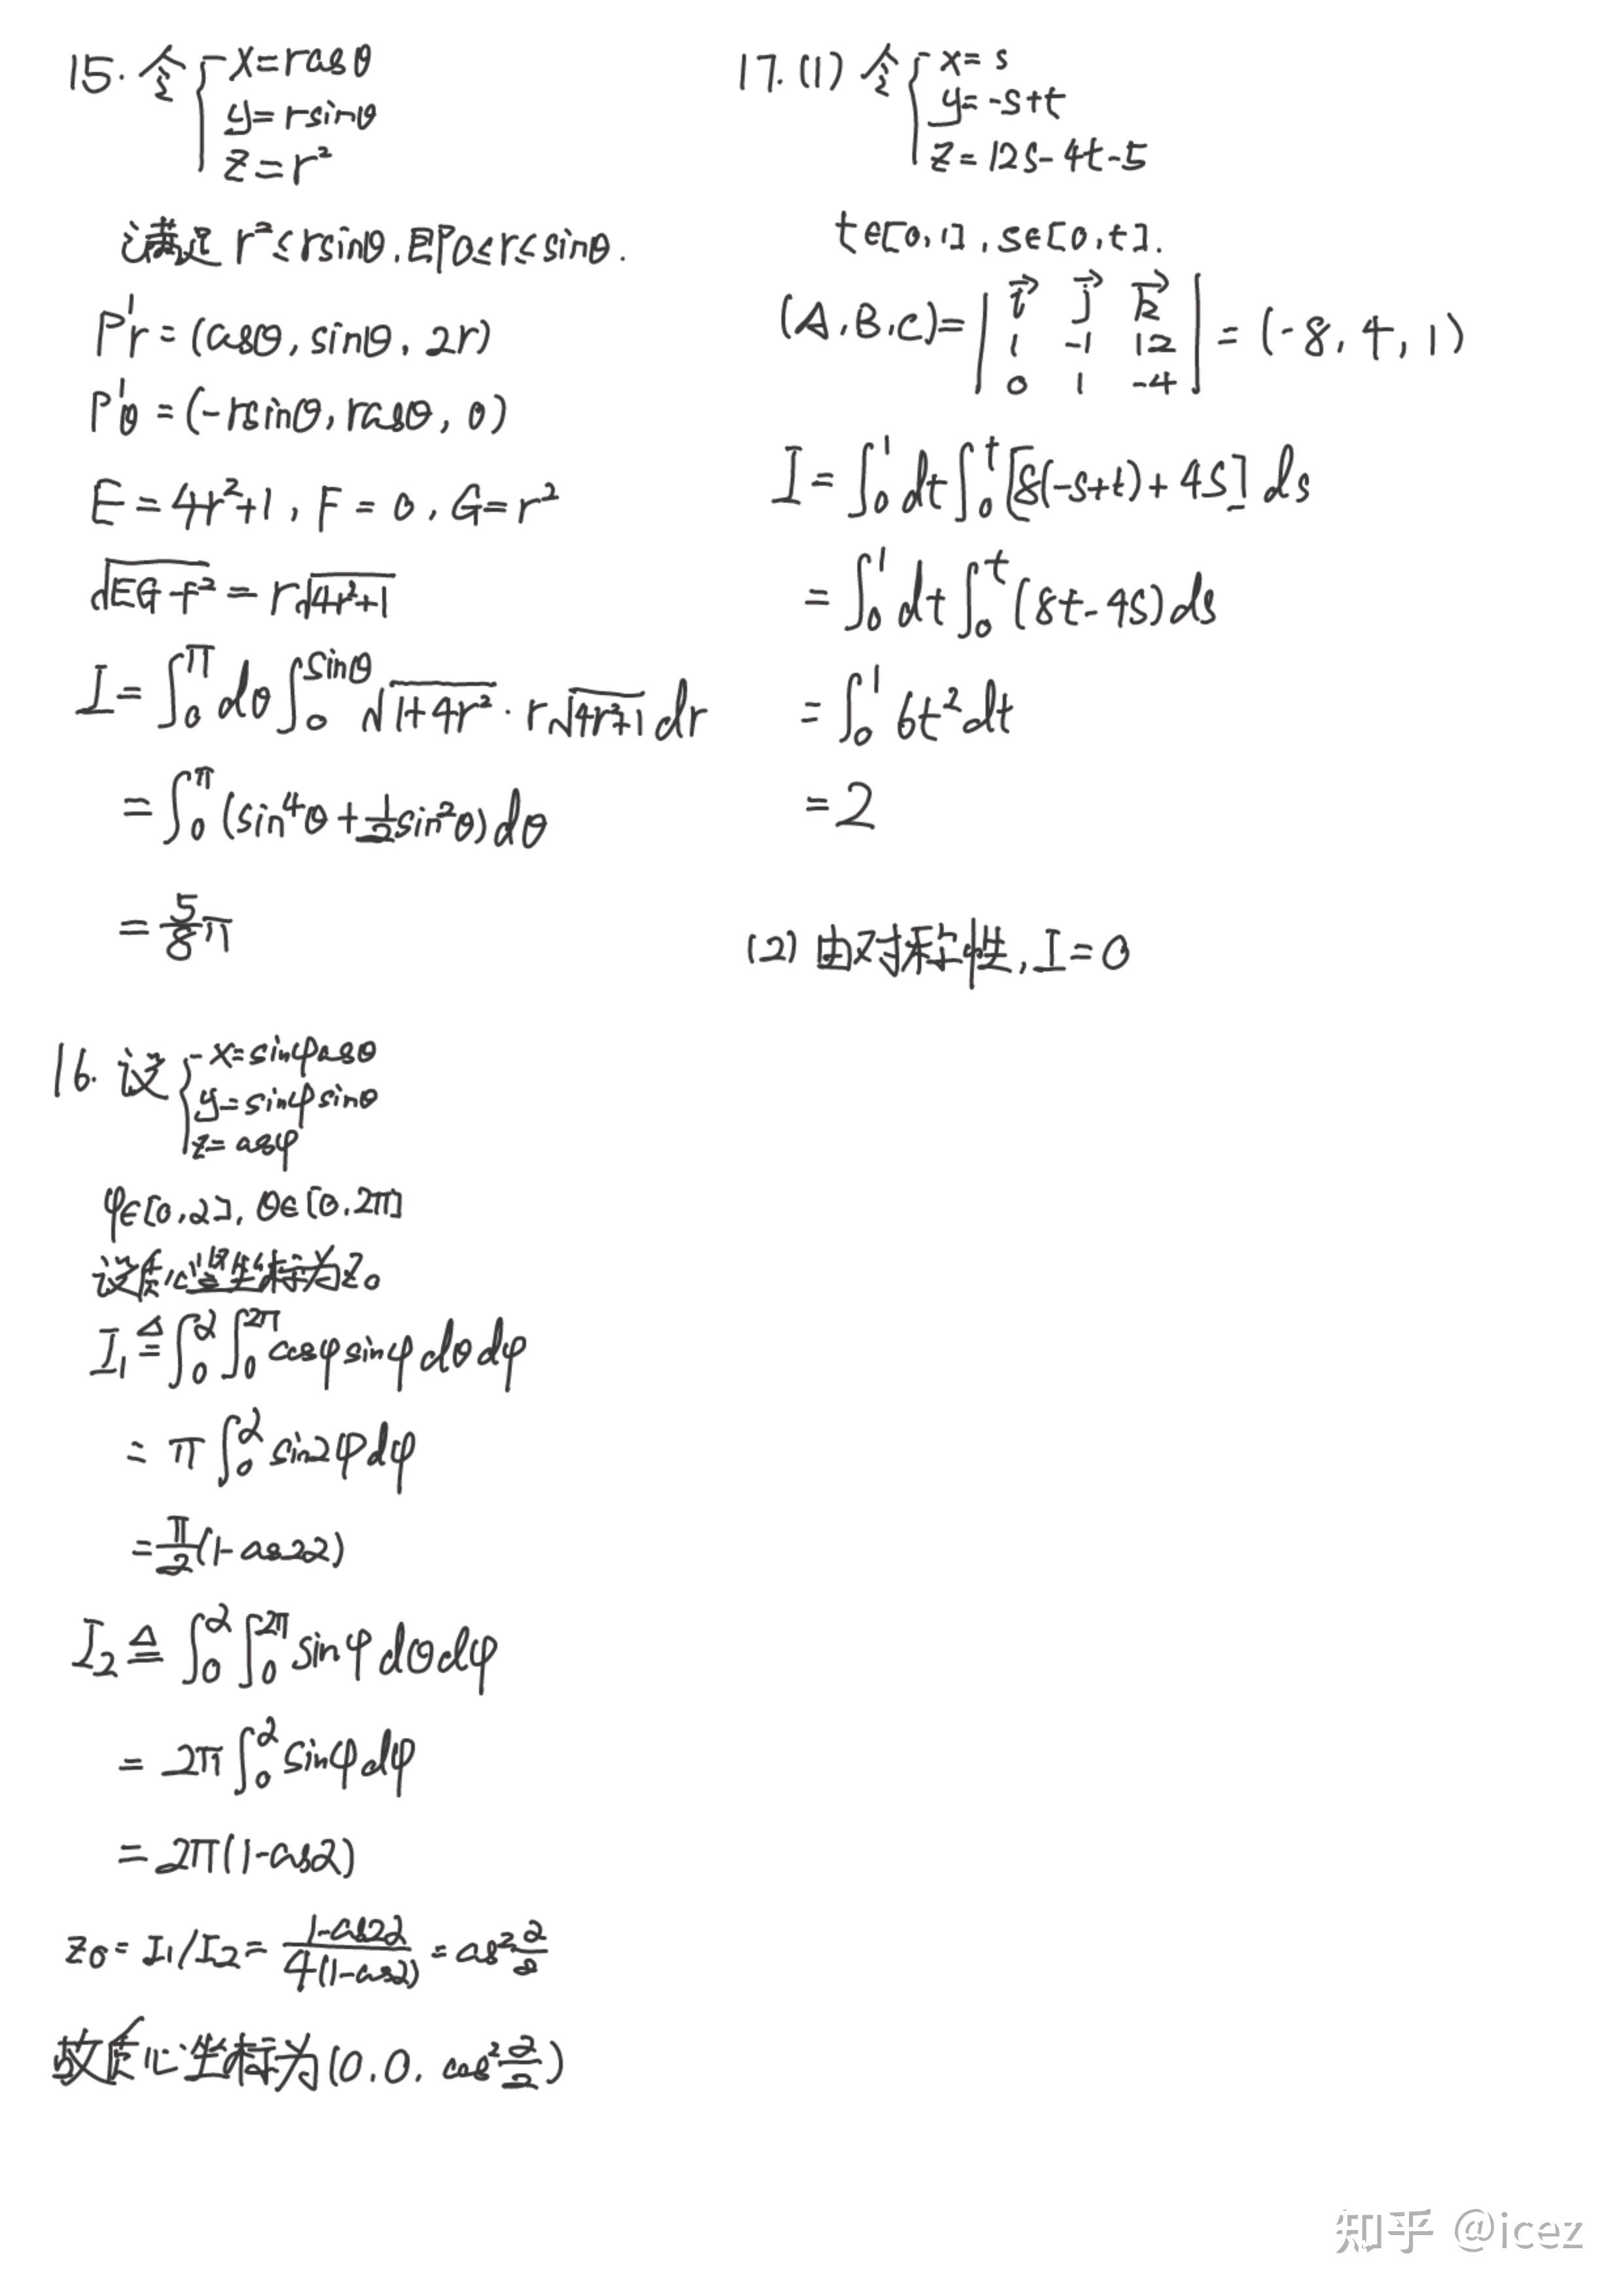 15. 令 { x=rcosθ
y=rsinθ
z=r²
满足 r²≤rsinθ,即0≤r≤sinθ.
P'r=(cosθ,sinθ,2r)
P'θ=(-rsinθ,rcosθ,0)
E=4r²+1,F=0,G=r²
√(EG-F²)=r√(4r²+1)
I=∫₀^π dθ∫₀^sinθ √(1+4r²)·r√(4r²+1) dr
=∫₀^π (sin⁴θ+1/2 sin²θ)dθ
=5/8 π
16. 设 { x=sinφcosθ
y=sinφsinθ
z=cosφ
φ∈[0,α],θ∈[0,2π]
设质心竖坐标为z₀
I₁≜∫₀^α∫₀^2π cosφsinφdθdφ
=π∫₀^α sin2φdφ
=π/2(1-cos2α)
I₂≜∫₀^α∫₀^2π sinφdθdφ
=2π∫₀^α sinφdφ
=2π(1-cosα)
z₀=I₁/I₂=(1-cos2α)/(4(1-cosα))=cos² α/2
故质心坐标为(0,0,cos² α/2)
17.(1) 令 { x=s
y=-s+t
z=12s-4t-5
t∈[0,1],s∈[0,t].
(A,B,C)=| i⃗ j⃗ k⃗ |
| 1 -1 12 | =(-8,4,1)
| 0 1 -4 |
I=∫₀¹dt∫₀^t[8(-s+t)+4s]ds
=∫₀¹dt∫₀^t(8t-4s)ds
=∫₀¹6t²dt
=2
(2) 由对称性,I=0
知乎 @icez